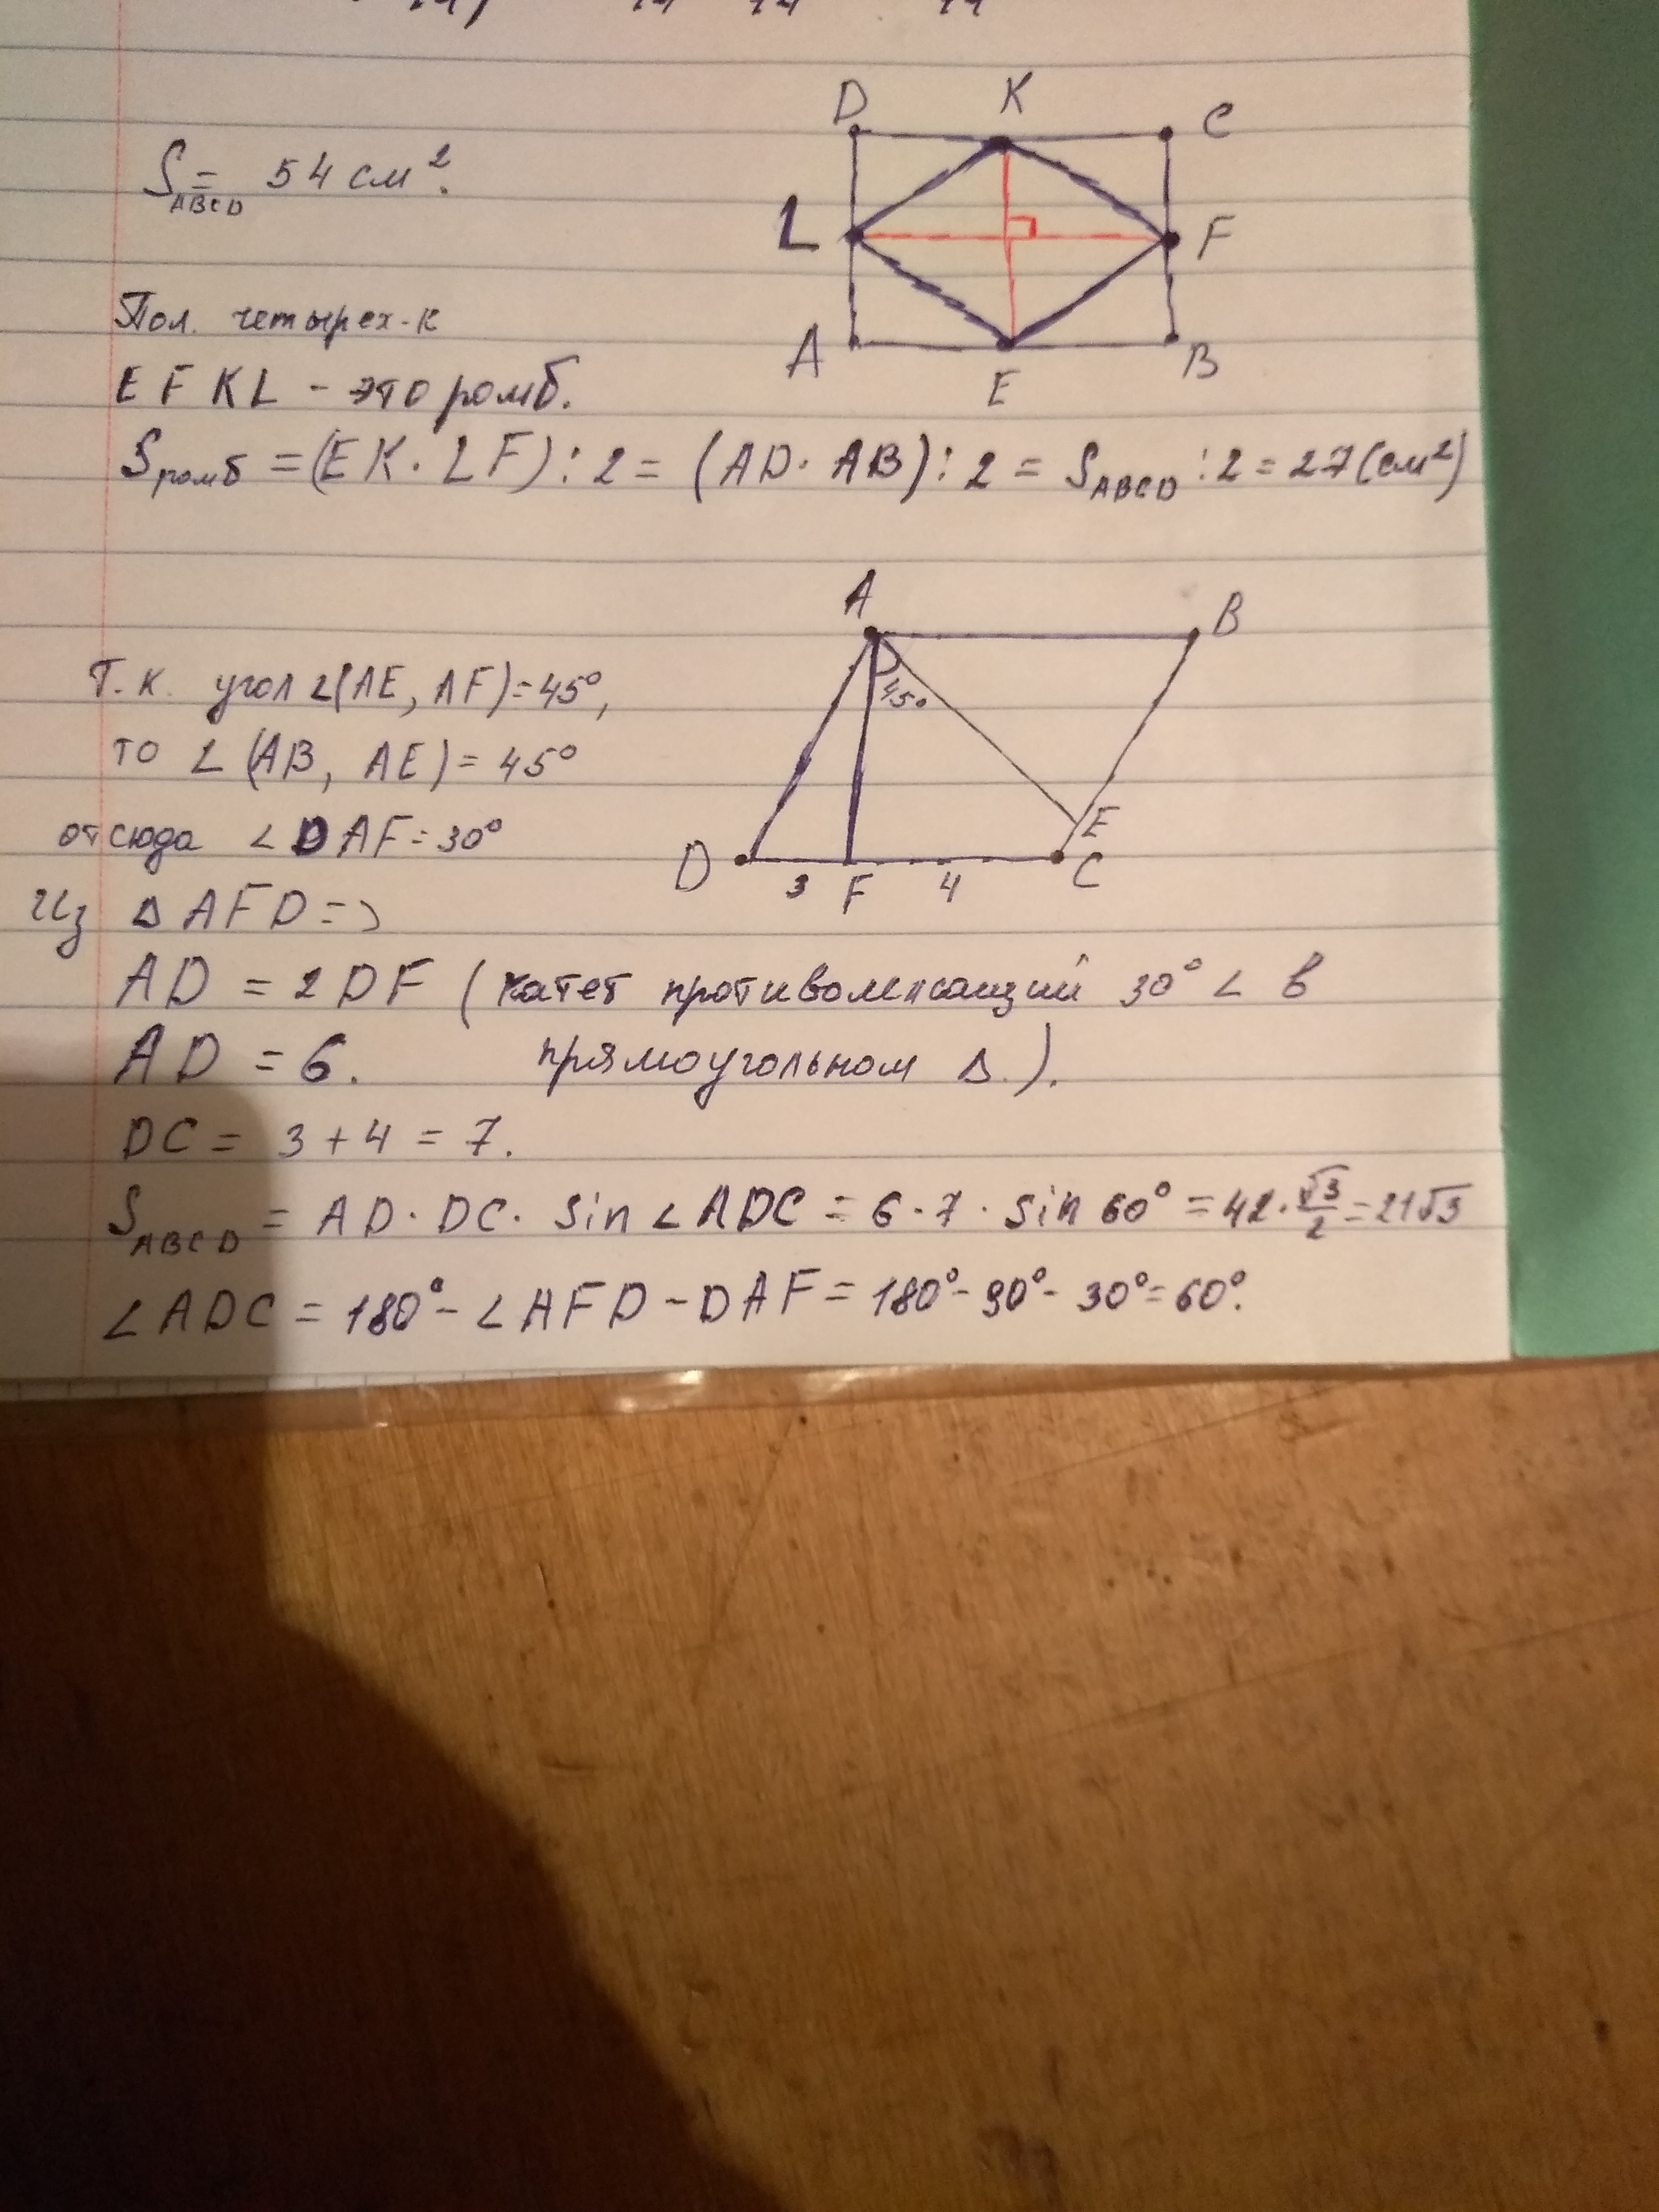 D K C
S_ABCD = 54 см².
L F
Пол. четырех-к
A E B
EFKL - это ромб.
S ромб = (EK · LF) : 2 = (AD · AB) : 2 = S_ABCD : 2 = 27 (см²)
A B
Т.к. угол ∠(AE, AF) = 45°,
45°
то ∠(AB, AE) = 45°
E
отсюда ∠DAF = 30°
D 3 F 4 C
Из Δ AFD =>
AD = 2DF (катет противолежащий 30° ∠ в
AD = 6. прямоугольном Δ.).
DC = 3 + 4 = 7.
S_ABCD = AD · DC · sin ∠ADC = 6 · 7 · sin 60° = 42 · √3/2 = 21√3
∠ADC = 180° - ∠AFD - DAF = 180° - 90° - 30° = 60°.